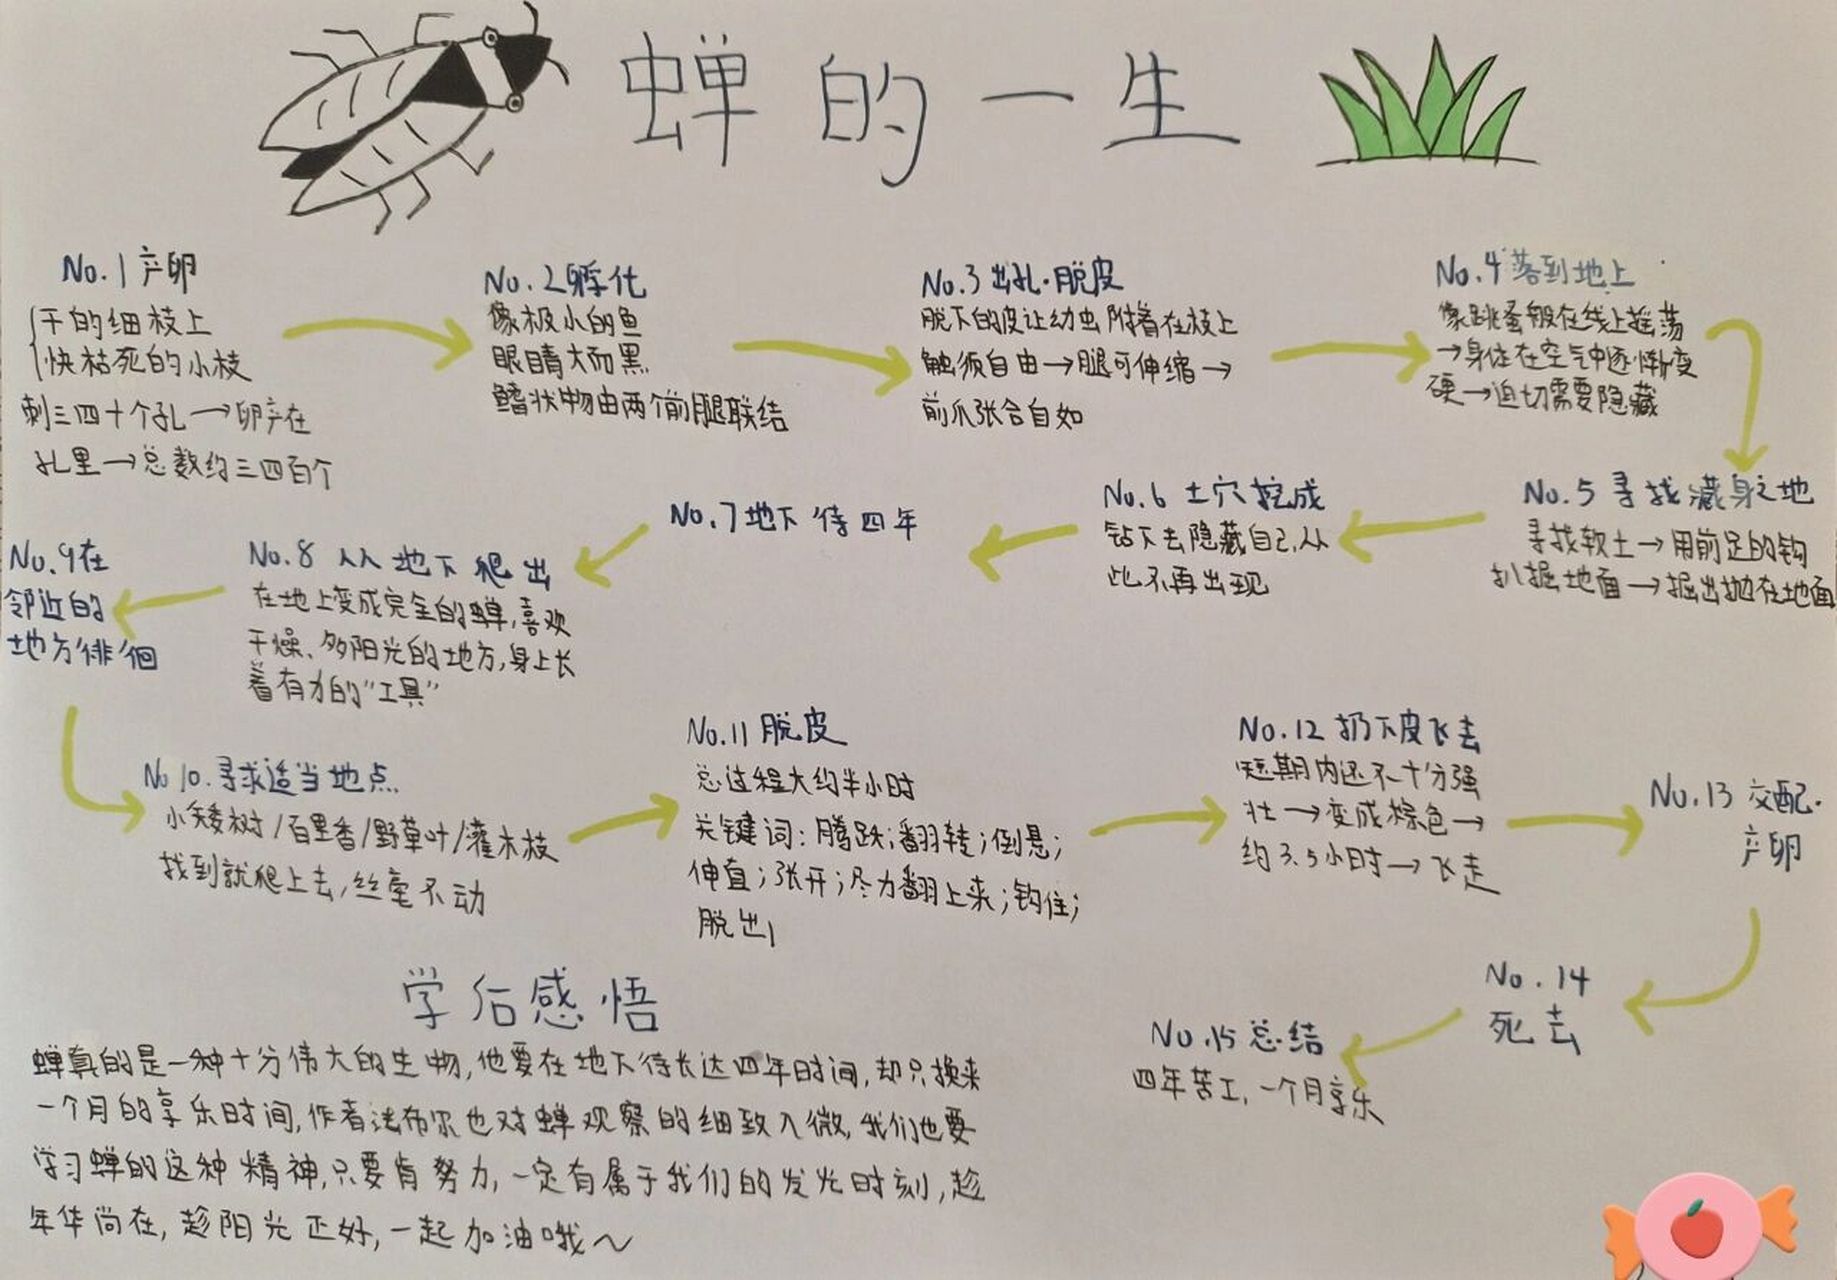 蝉的一生
No.1产卵
干的细枝上
快枯死的小枝
刺三四十个孔→卵产在
孔里→总数约三四百个
No.2孵化
像极小的鱼
眼睛大而黑
鳍状物由两个前腿联结
No.3出孔·脱皮
脱下的皮让幼虫附着在枝上
触须自由→腿可伸缩→
前爪张合自如
No.4落到地上
像跳蚤般在线上摇荡
→身体在空气中逐渐变
硬→迫切需要隐藏
No.5寻找藏身之地
寻找软土→用前足的钩
扒掘地面→掘出抛在地面
No.6土穴挖成
钻下去隐藏自己,从
此不再出现
No.7地下待四年
No.8从地下爬出
在地上变成完全的蝉,喜欢
干燥、多阳光的地方,身上长
着有力的"工具"
No.9在
邻近的
地方徘徊
No10.寻求适当地点
小矮树/百里香/野草叶/灌木枝
找到就爬上去,丝毫不动
No.11脱皮
总过程大约半小时
关键词:腾跃;翻转;倒悬;
伸直;张开;尽力翻上来;钩住;
脱出
No.12扔下皮飞去
短期内还不十分强
壮→变成棕色→
约3.5小时→飞走
No.13交配·
产卵
No.14
死去
No.15总结
四年苦工,一个月享乐
学后感悟
蝉真的是一种十分伟大的生物,他要在地下待长达四年时间,却只换来
一个月的享乐时间,作者法布尔也对蝉观察的细致入微,我们也要
学习蝉的这种精神,只要肯努力,一定有属于我们的发光时刻,趁
年华尚在,趁阳光正好,一起加油哦～